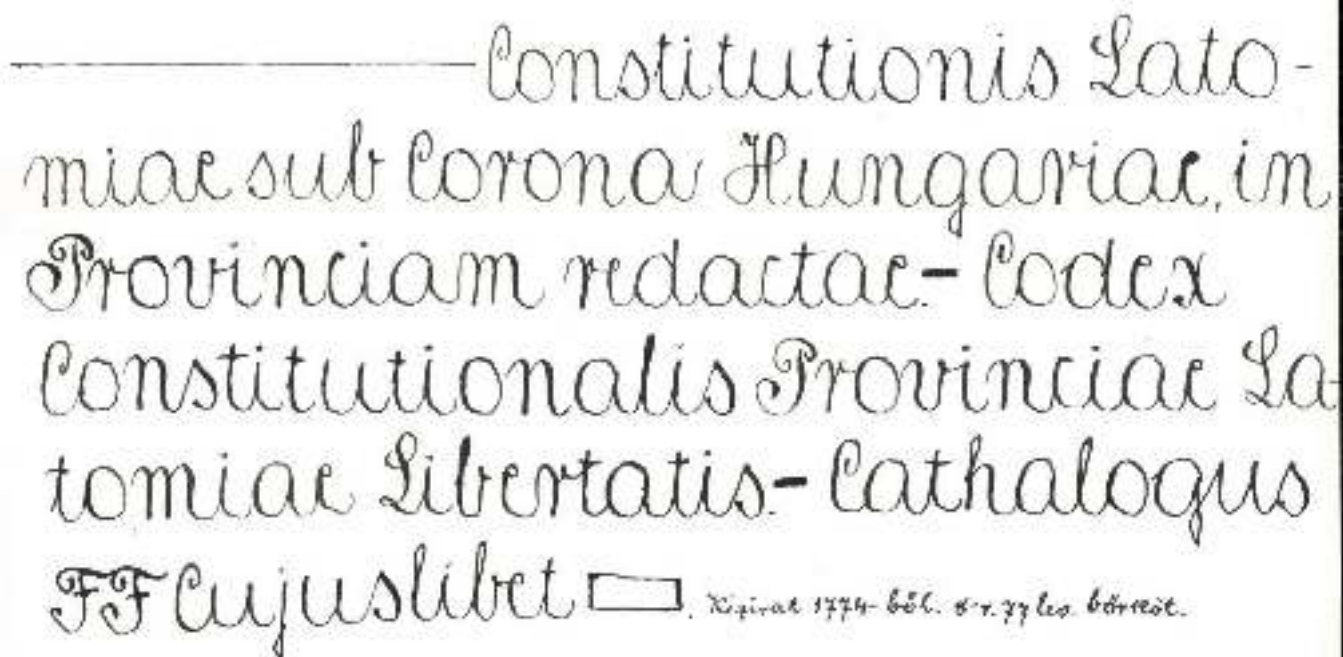 Constitutionis Lato-
miae sub Corona Hungariae, in
Provinciam redactae.- Codex
Constitutionalis Provinciae La-
tomiae Libertatis.- Cathalogus
FF Cujuslibet ▭. Kézirat 1774-ből. 8-r. 77 lev. bőrköt.